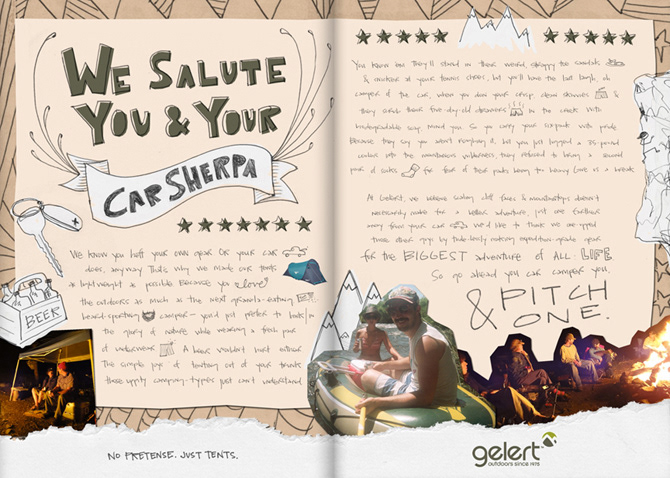 WE SALUTE
YOU & YOUR
CAR SHERPA
We know you haul your own gear. OK your car
does, anyway. That's why we made car tents
as lightweight as possible. Because you love
the outdoors as much as the next granola-eating
beard-sporting camper – you'd just prefer to bask in
the glory of nature while wearing a fresh pair
of underwear. A beer wouldn't hurt either.
The simple joys of tenting out of your trunk
those uppity camping-types just can't understand.
BEER
NO PRETENSE. JUST TENTS.
You know how they'll stand in their weird, strappy toe sandals
& snicker at your tennis shoes, but you'll have the last laugh, oh
camper of the car, when you don your crisp clean skivvies &
they scrub their five-day-old drawers in the creek with
biodegradable soap, mind you. So you carry your carpants with pride
Because they say you aren't roughing it, but you just lugged a 75-pound
cooler into the mountainous wilderness they refused to bring a second
pair of socks for fear of their packs being too heavy. Love is a breeze
At Gelert, we believe scaling cliff faces & mountaintops doesn't
necessarily make for a better adventure, just one farther
away from your car. We'd like to think we one-upped
those other guys by thoughtfully outfitting expedition-grade gear
for the BIGGEST adventure of ALL: LIFE
So go ahead you car camper you,
& PITCH
ONE.
gelert
outdoors since 1975